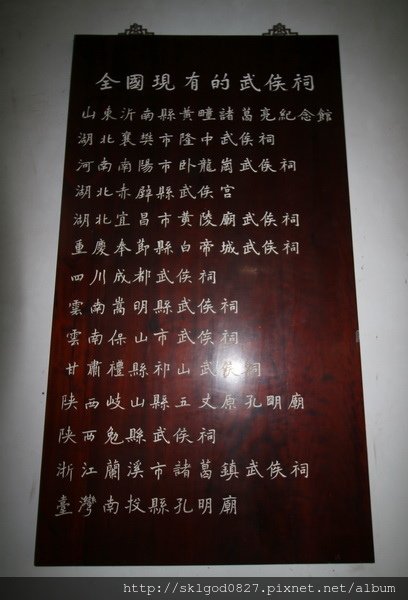 全國現有的武侯祠
山東沂南縣黃疃諸葛亮紀念館
湖北襄樊市隆中武侯祠
河南南陽市臥龍崗武侯祠
湖北赤壁縣武侯宮
湖北宜昌市黃陵廟武侯祠
重慶奉節縣白帝城武侯祠
四川成都武侯祠
雲南嵩明縣武侯祠
雲南保山市武侯祠
甘肅禮縣祁山武侯祠
陝西岐山縣五丈原孔明廟
陝西勉縣武侯祠
浙江蘭溪市諸葛鎮武侯祠
臺灣南投縣孔明廟
http://sklgod0827.pixnet.net/album